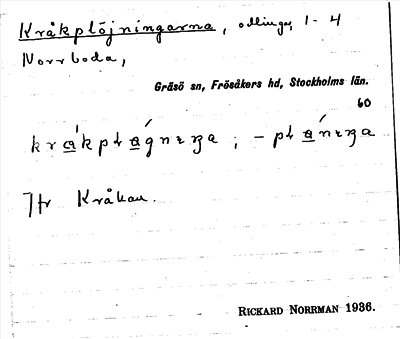 Kråkplöjningarna, odlingar, 1-4
Norrboda,
Gräsö sn, Frösåkers hd, Stockholms län.
60
Jfr Kråkan.
RICKARD NORRMAN 1936.